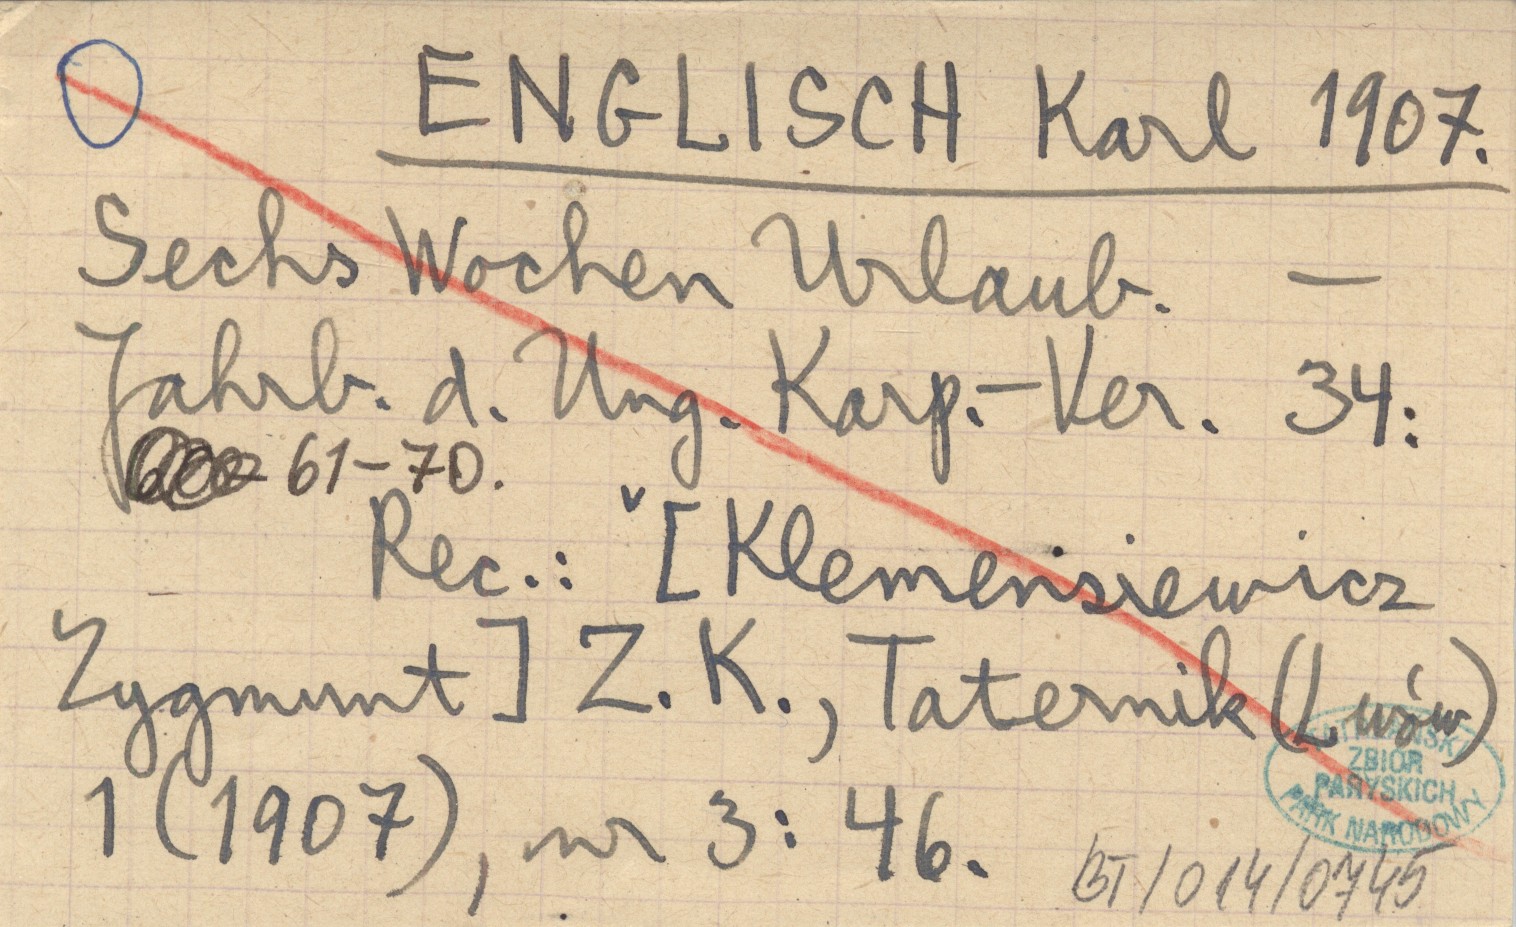 ENGLISCH Karl 1907.
Sechs Wochen Urlaub. —
Jahrb. d. Ung. Karp.-Ver. 34:
61-70.
Rec.: [Klemensiewicz
Zygmunt] Z. K., Taternik (Lwów)
1 (1907), nr 3: 46.
ZBIÓR
PARYSKICH
PARK NARODOWY
BT/014/0745